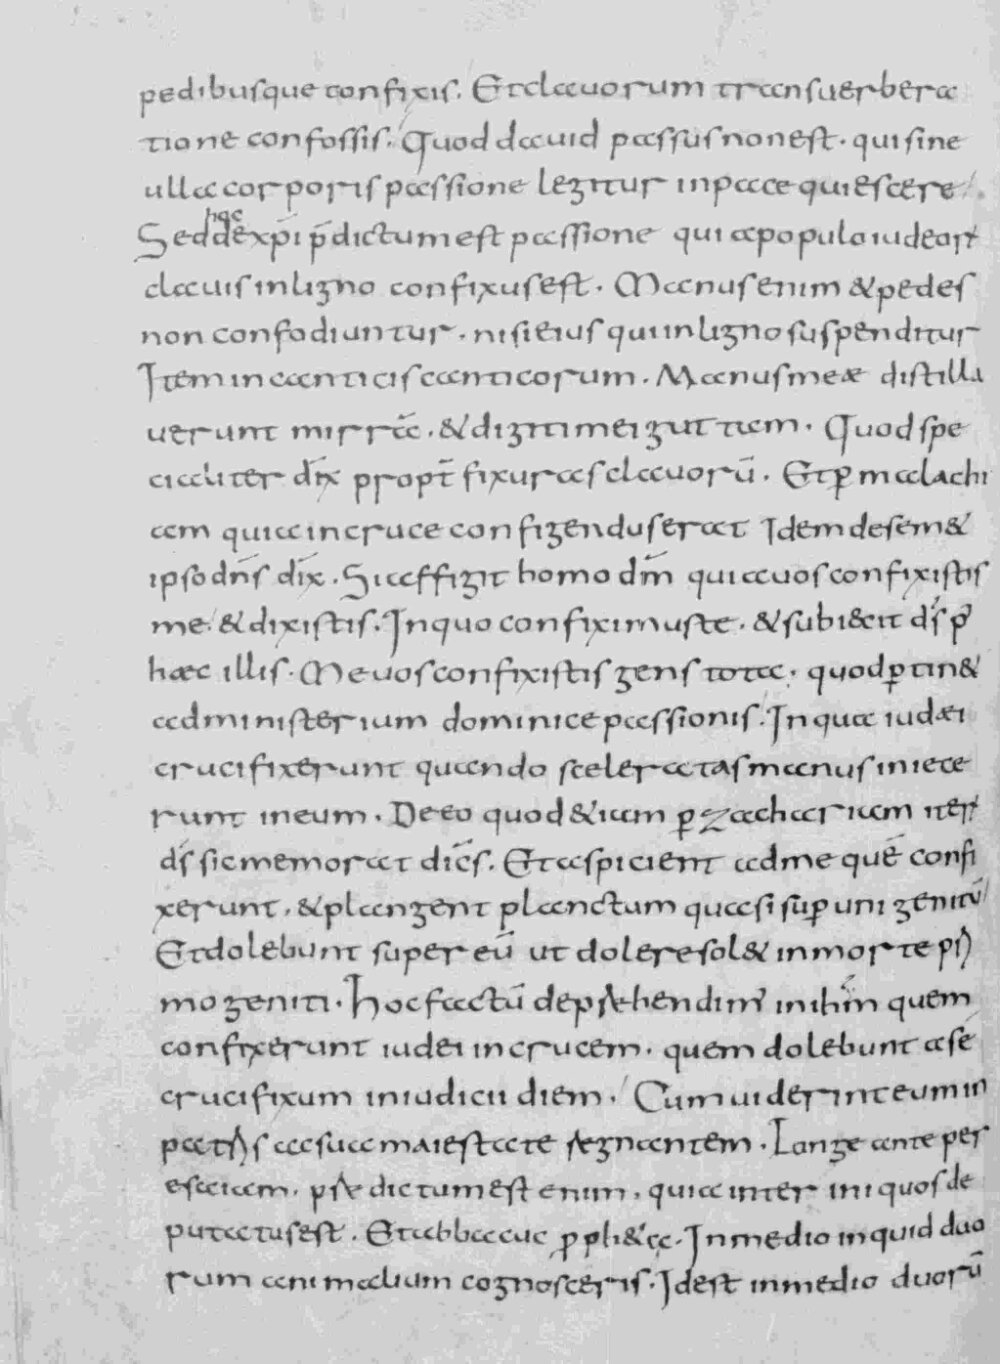 pedibusque confixis. Et clauorum transuerbera
tione confossis. Quod dauid passus non est. qui sine
ulla corporis passione legitur in pace quiescere.
Sed de hęc xp̄i p̄dictum est passione qui a populo iudeorꝝ
clauis in ligno confixus est. Manus enim & pedes
non confodiuntur. nisi eius qui in ligno suspenditur
Item in canticis canticorum. Manus meæ distilla
uerunt mirrā. & digiti mei guttam. Quod spe
cialiter dix̄ propt̄ fixuras clauorū. Et ꝑ malachi
am quia in cruce configendus erat Idem de sem&
ipso dn̄s dix̄. Si affigit homo dm̄ quia uos confixistis
me. & dixistis. In quo confiximus te. & subi&it ds̄ p̾
hæc illis. Me uos confixistis gens tota. quod ꝑtin&
ad ministerium dominice passionis. In qua iudæi
crucifixerunt quando sceleratas manus iniece
runt in eum. De eo quod &iam ꝑ zachariam iterꝝ
ds̄ sic memorat dic̄s. Et aspicient ad me quē confi
xerunt. & plangent planctum quasi suꝑ unigenitū
Et dolebunt super eū ut dolere sol& in morte pri
mogeniti. Hoc factū depręhendimꝰ in ihm̄ quem
confixerunt iudei in crucem. quem dolebunt a se
crucifixum in iudicii diem. Cum uiderint eum in
patris ac sua maiestate regnantem. Longe ante per
esaiam. prędictum est enim. quia inter iniquos de
putatus est. Et abbacuc ꝓph&ę. In medio inquid duo
rum animalium cognosceris. Id est in medio duorū